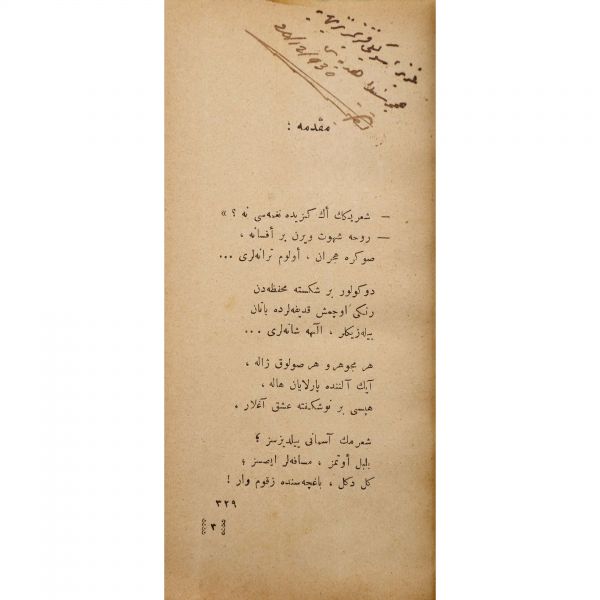 20/12/930
مقدمه :
— شعریكك اڭ كزیده نغمه‌سی نه ؟ »
— روحه شهوت ویرن بر أفسانه ،
صوكره هجران ، أولوم ترانه‌لری ...
دوكولور بر شكسته محفظه‌دن
رنكی اوچمش قدیفه‌لرده یاتان
بیله‌زیكلر ، آلهه شانه‌لری ...
هر مجوهر و هر صولوق ژاله ،
آیك آلننده پارلایان هاله ،
هپسی بر نوشكفته عشق آغلار .
شعرمك آسمانی ییلدیزسز ؛
بلبل أوتمز ، مسافه‌لر ایصسز ؛
كل دكل ، باغچه‌سنده زقوم وار !
٣٢٩
٣